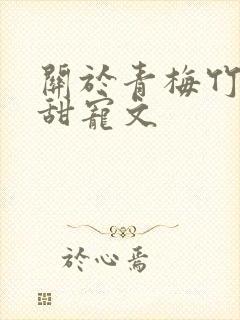 關於青梅竹
甜寵文
於心焉